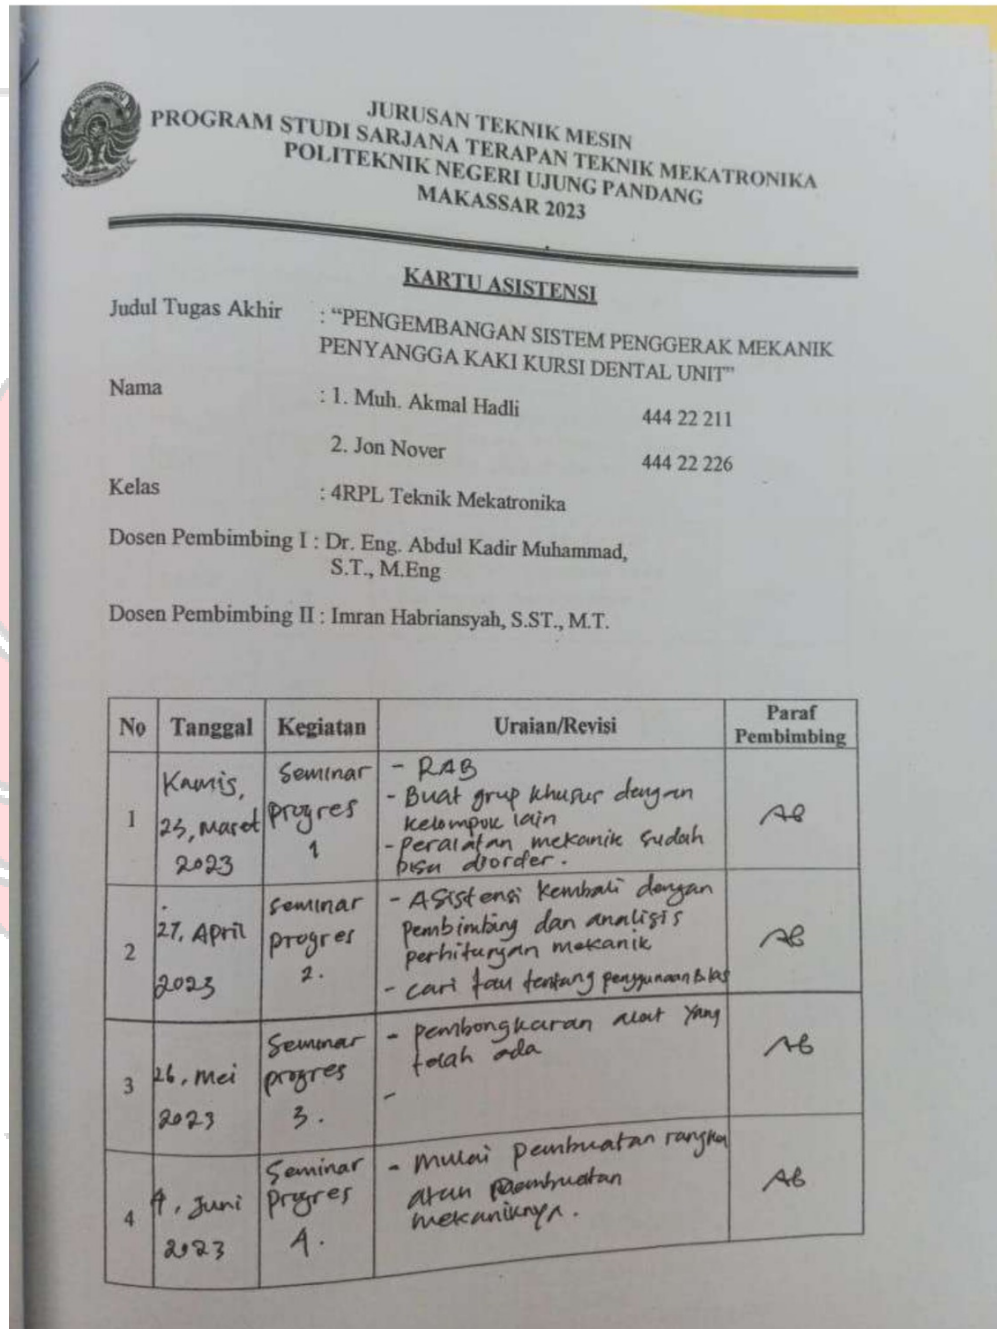 JURUSAN TEKNIK MESIN
PROGRAM STUDI SARJANA TERAPAN TEKNIK MEKATRONIKA
POLITEKNIK NEGERI UJUNG PANDANG
MAKASSAR 2023
KARTU ASISTENSI
Judul Tugas Akhir : “PENGEMBANGAN SISTEM PENGGERAK MEKANIK
PENYANGGA KAKI KURSI DENTAL UNIT”
Nama : 1. Muh. Akmal Hadli 444 22 211
2. Jon Nover 444 22 226
Kelas : 4RPL Teknik Mekatronika
Dosen Pembimbing I : Dr. Eng. Abdul Kadir Muhammad,
S.T., M.Eng
Dosen Pembimbing II : Imran Habriansyah, S.ST., M.T.
No Tanggal Kegiatan Uraian/Revisi Paraf Pembimbing
1
Kamis,
maret
2023
Seminar
progres
1
- RAB
- Buat grup khusus dengan
kelompok lain
- peralatan mekanik sudah
bisa diorder.
2
27, April
2023
seminar
progres
2.
- Asistensi kembali dengan
pembimbing dan analisis
perhitungan mekanik
- cari tau tentang penggunaan
3
26, mei
2023
Seminar
progres
3.
- pembongkaran alat yang
telah ada
-
4
Juni
2023
Seminar
progres
4.
- mulai pembuatan rangka
atau pembuatan
mekaniknya.